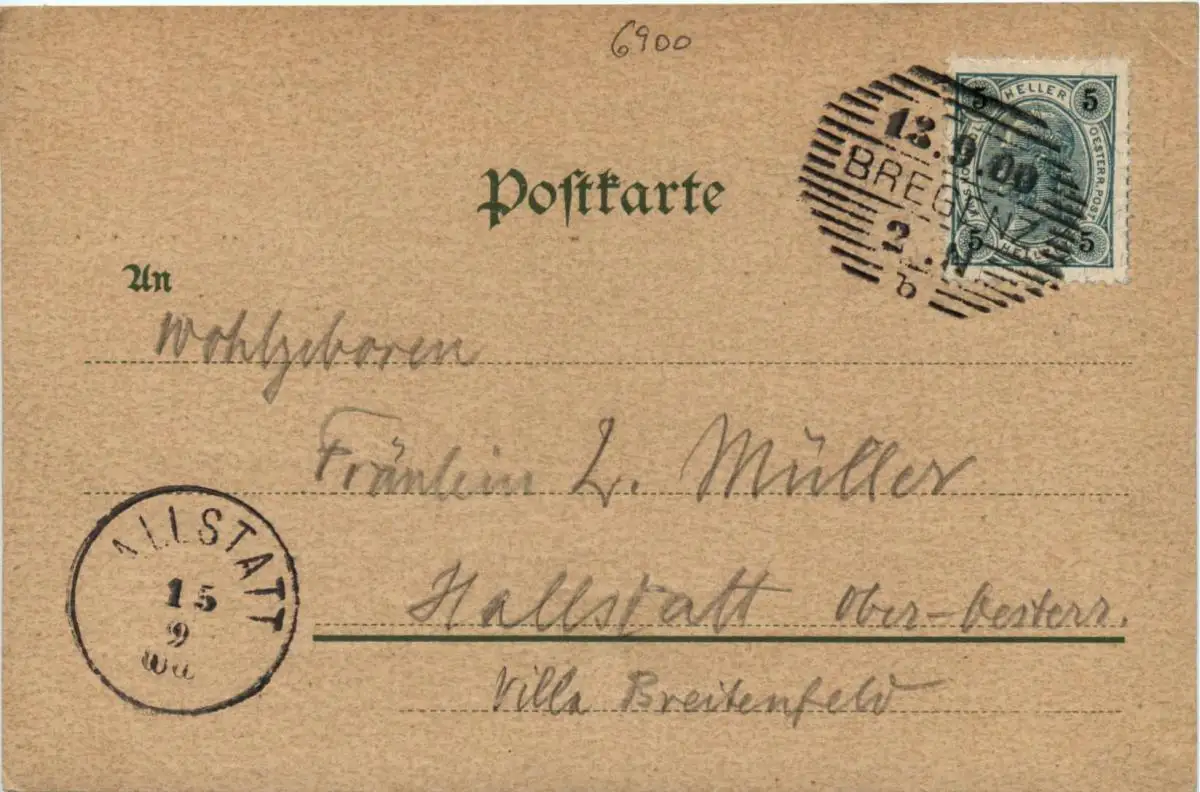 6900
5 HELLER 5
OESTERR. POST
5 HELLER 5
13.9.00
BREGENZ
2.N
b
Postkarte
An
Wohlgeboren
Fräulein L. Müller
Hallstatt Ober-Oesterr.
Villa Breitenfeld
ALLSTATT
15
9